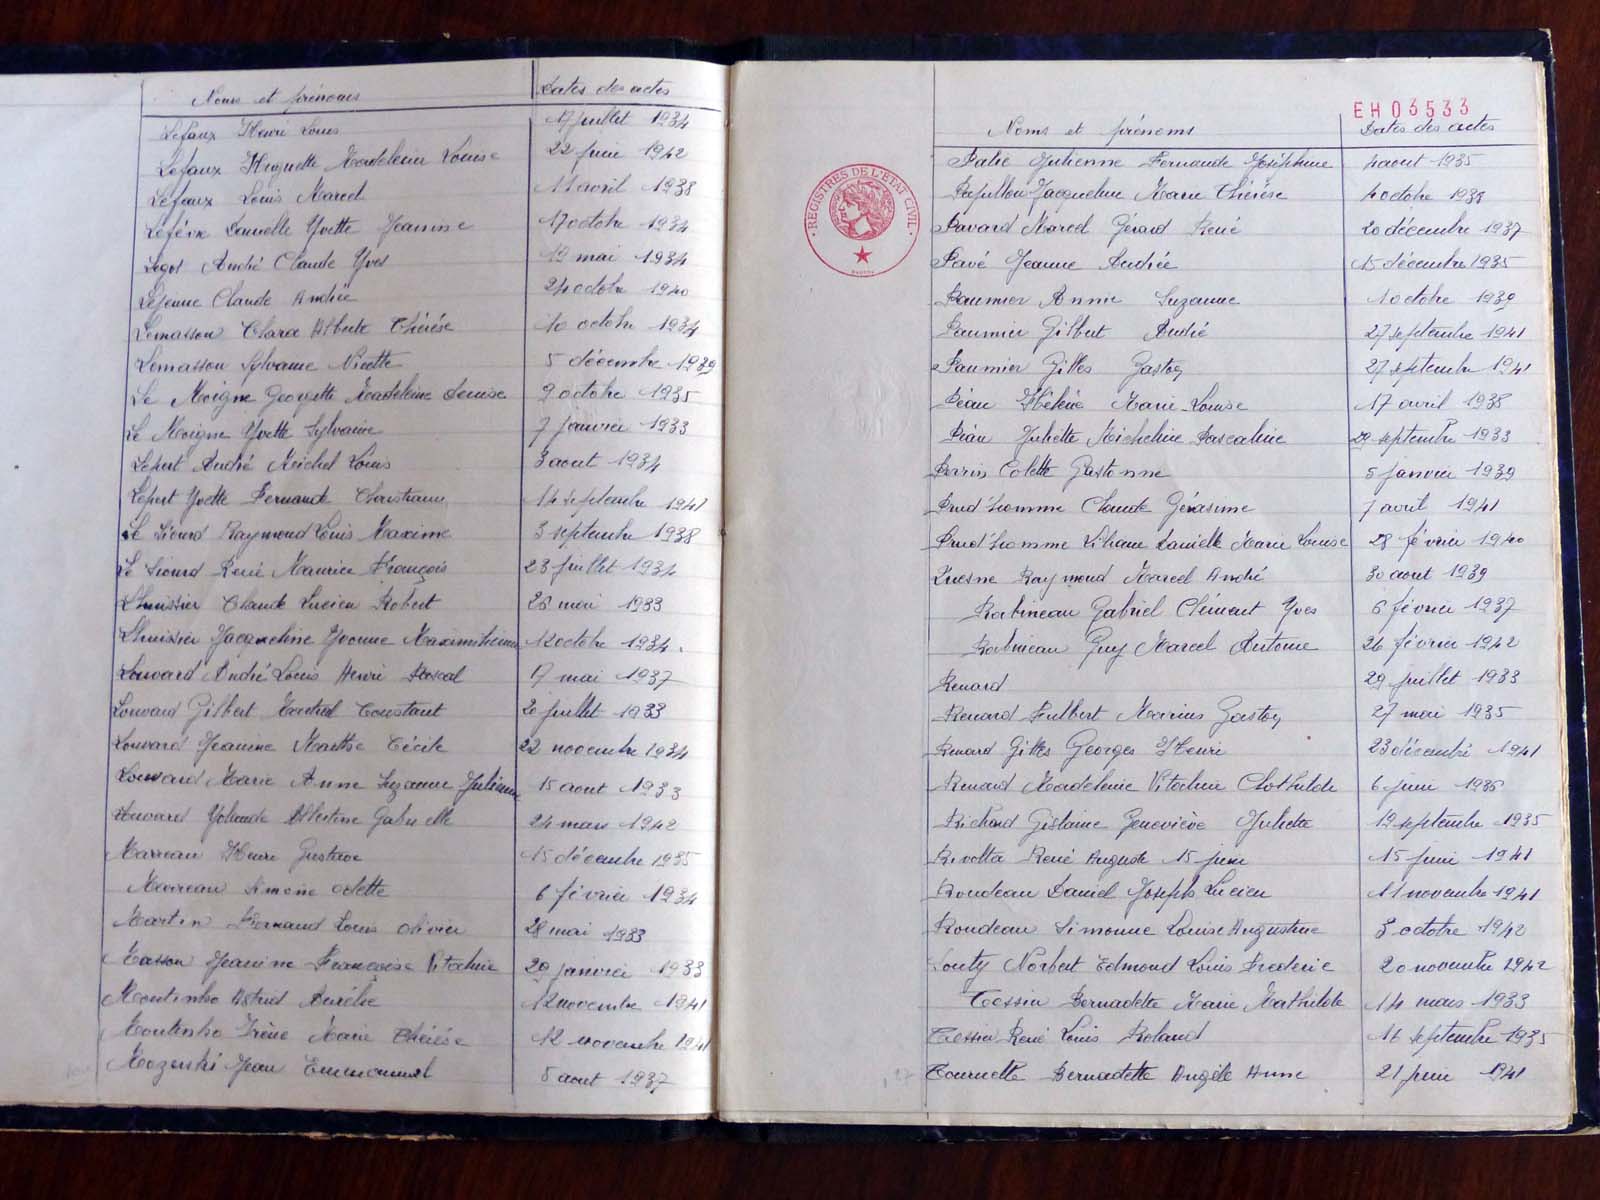 Noms et prénoms Dates des actes
Lefaux Henri Louis 17 juillet 1934
Lefaux Huguette Madeleine Louise 22 juin 1942
Lefaux Louis Marcel 11 avril 1938
Lefèvre Danielle Yvette Jeannine 17 octobre 1934
Legot André Claude Yves 19 mai 1934
Lejeune Claude Andrée 24 octobre 1940
Lemasson Clara Alberte Thérèse 10 octobre 1934
Lemasson Sylvaine Ninette 5 décembre 1939
Le Moigne Georgette Madeleine Denise 9 octobre 1935
Le Moigne Yvette Sylvaine 7 janvier 1933
Lepert André Michel Louis 3 août 1934
Lepert Yvette Fernande Christiane 14 septembre 1941
Le Siourd Raymond Louis Maxime 3 septembre 1938
Le Siourd René Maurice François 23 juillet 1934
Lhuissier Claude Lucien Robert 26 mai 1933
Lhuissier Jacqueline Yvonne 12 octobre 1934
Louvard André Louis Henri Pascal 17 mai 1937
Louvard Gilbert Constant 20 juillet 1933
Louvard Jeanine Marthe Cécile 22 novembre 1934
Louvard Marie Anne Suzanne 15 août 1933
Yolande Albertine Gabrielle 24 mars 1942
Marreau Henri Gustave 15 décembre 1935
Marreau Simone Odette 6 février 1934
Martin Fernand Louis Olivier 28 mai 1933
Masson Jeanine Françoise 29 janvier 1933
Moutinho Astrid Aurélie 12 novembre 1941
Moutinho Irène Marie Thérèse 12 novembre 1941
Mozerski Jean Emmanuel 5 août 1937
EH03533
REGISTRES DE L'ETAT CIVIL
Noms et prénoms Dates des actes
Julienne Fernande Joséphine 4 août 1935
Papillon Jacqueline Marie Thérèse 4 octobre 1933
Pavard Marcel Gérard René 20 décembre 1937
Pavé Jeanne Andrée 15 décembre 1935
Paumier Annie Suzanne 1 octobre 1939
Paumier Gilbert André 27 septembre 1941
Paumier Gilles Gaston 27 septembre 1941
Péan Hélène Marie Louise 17 avril 1938
Péan Juliette Micheline Pascaline 29 septembre 1933
Colette Gastonne 5 janvier 1939
Prud'homme Claude Gérasime 7 avril 1941
Prud'homme Liliane Danielle Marie Louise 28 février 1940
Quesne Raymond Marcel André 30 août 1939
Rabineau Gabriel Clément Yves 6 février 1937
Rabineau Guy Marcel Antoine 26 février 1942
Renard 29 juillet 1933
Renard Fulbert Marius Gaston 27 mai 1935
Renard Gilles Georges Henri 23 décembre 1941
Renard Madeleine Clothilde 6 juin 1936
Richard Gislaine Geneviève Juliette 19 septembre 1935
Rivolta René Auguste 15 juin 15 juin 1941
Rondeau Daniel Joseph Lucien 11 novembre 1941
Rondeau Simonne Louise Augustine 3 octobre 1942
Souty Norbert Edmond Louis Frederic 20 novembre 1942
Tessier Bernadette Marie Mathilde 14 mars 1933
Tessier René Louis Roland 16 septembre 1935
Tournette Bernadette Angèle Anne 21 juin 1941